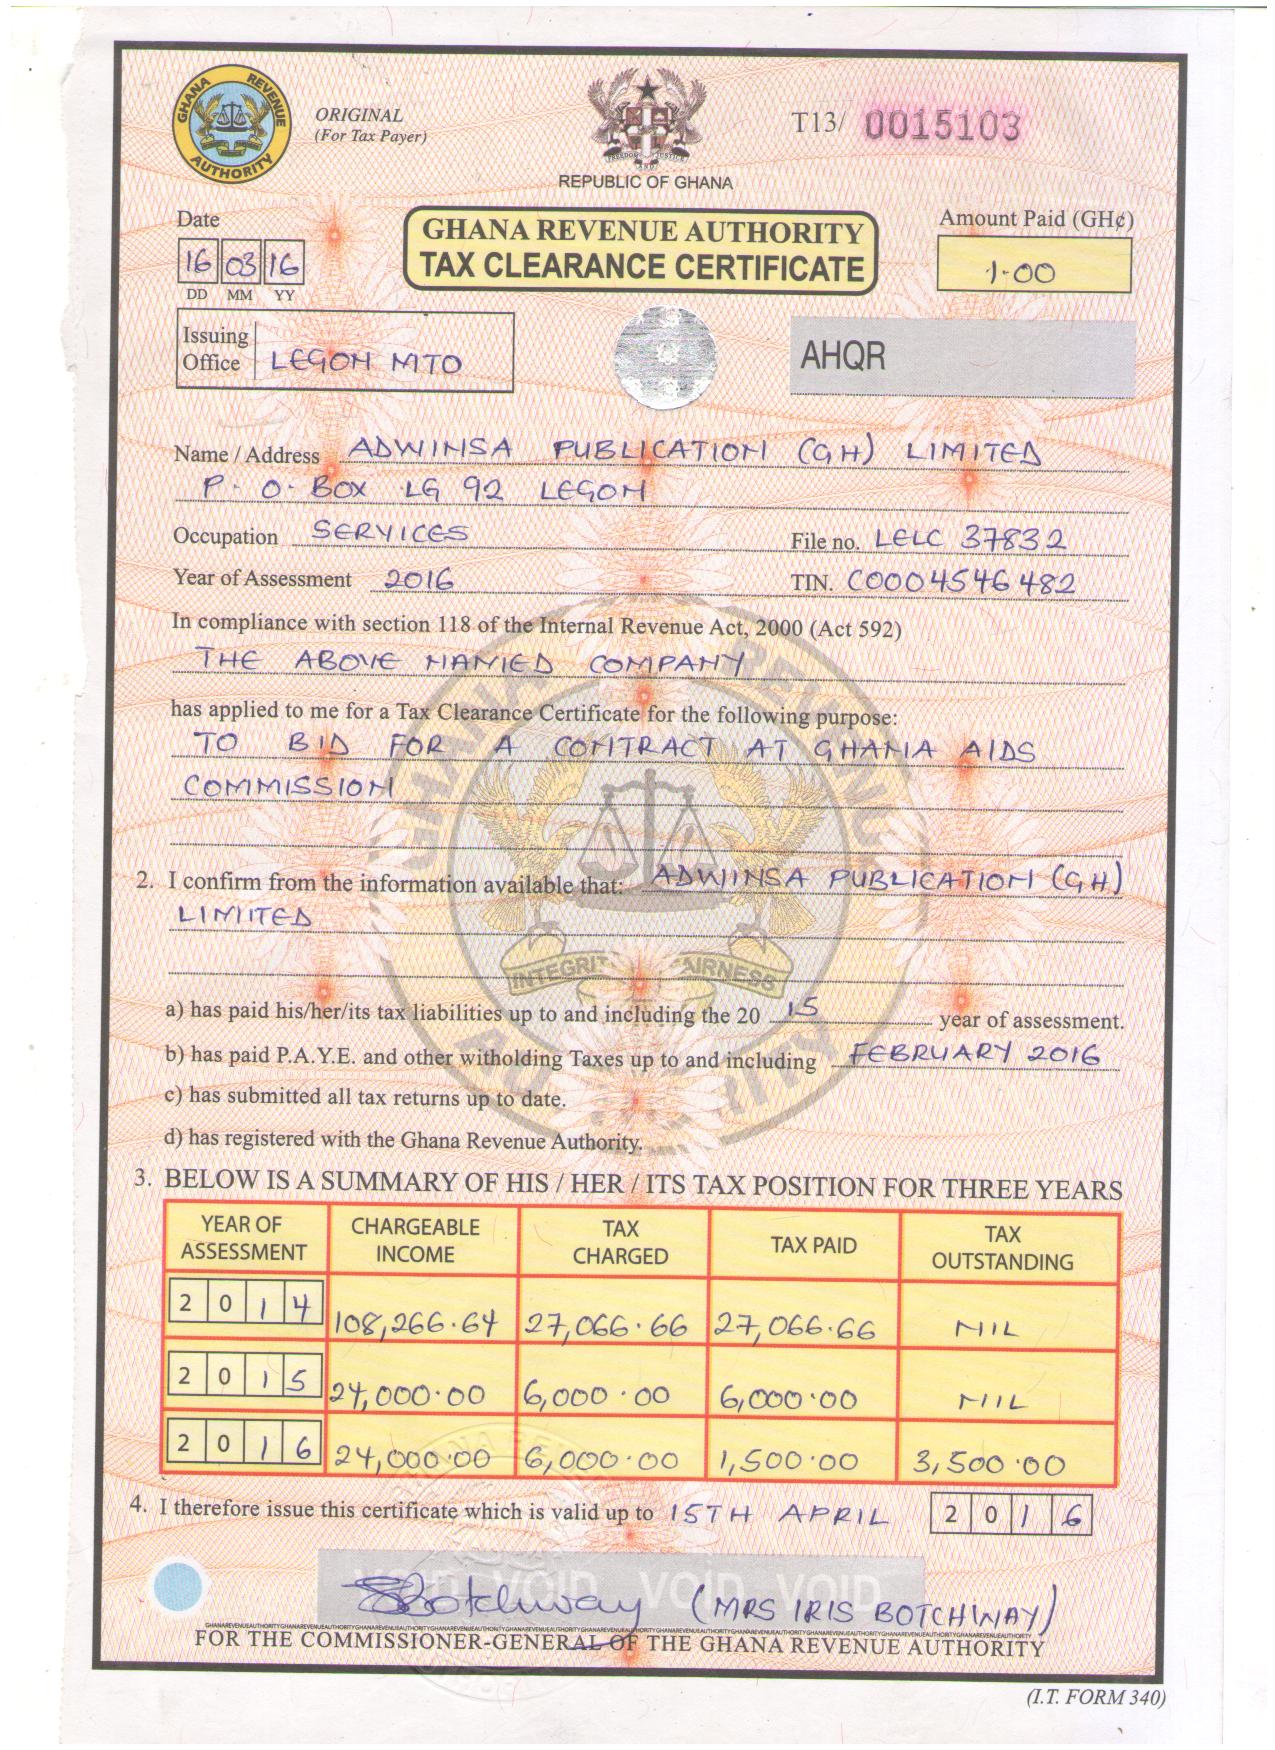 GHANA REVENUE AUTHORITY
ORIGINAL
(For Tax Payer)
FREEDOM AND JUSTICE
REPUBLIC OF GHANA
T13/ 0015103
Date
16 03 16
DD MM YY
GHANA REVENUE AUTHORITY
TAX CLEARANCE CERTIFICATE
Amount Paid (GH¢)
1.00
Issuing
Office LEGON MTO
AHQR
Name / Address ADWINSA PUBLICATION (GH) LIMITED
P.O. BOX LG 92 LEGON
Occupation SERVICES File no. LELC 37832
Year of Assessment 2016 TIN. C0004546482
In compliance with section 118 of the Internal Revenue Act, 2000 (Act 592)
THE ABOVE NAMED COMPANY
has applied to me for a Tax Clearance Certificate for the following purpose:
TO BID FOR A CONTRACT AT GHANA AIDS
COMMISSION
2. I confirm from the information available that: ADWINSA PUBLICATION (GH)
LIMITED
INTEGRITY FAIRNESS
a) has paid his/her/its tax liabilities up to and including the 20 15 year of assessment.
b) has paid P.A.Y.E. and other witholding Taxes up to and including FEBRUARY 2016
c) has submitted all tax returns up to date.
d) has registered with the Ghana Revenue Authority.
3. BELOW IS A SUMMARY OF HIS / HER / ITS TAX POSITION FOR THREE YEARS
YEAR OF ASSESSMENT CHARGEABLE INCOME TAX CHARGED TAX PAID TAX OUTSTANDING
2014 108,266.64 27,066.66 27,066.66 NIL
2015 24,000.00 6,000.00 6,000.00 NIL
2016 24,000.00 6,000.00 1,500.00 3,500.00
4. I therefore issue this certificate which is valid up to 15TH APRIL 2016
VOID VOID VOID VOID
Botchway (MRS IRIS BOTCHWAY)
FOR THE COMMISSIONER-GENERAL OF THE GHANA REVENUE AUTHORITY
(I.T. FORM 340)